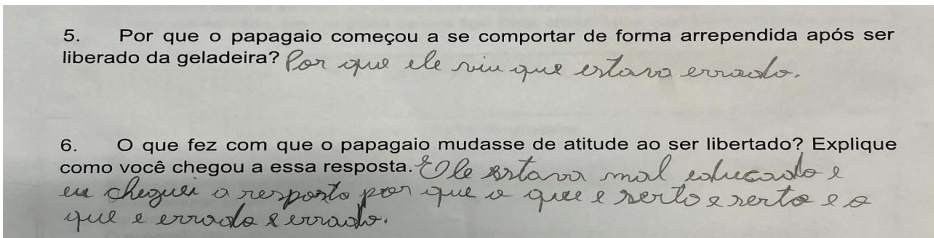 5. Por que o papagaio começou a se comportar de forma arrependida após ser
liberado da geladeira? Por que ele viu que estava errado.
6. O que fez com que o papagaio mudasse de atitude ao ser libertado? Explique
como você chegou a essa resposta. Ele estava mal educado e
eu cheguei a resposta por que o que e serto e serto e o
que e errado e errado.